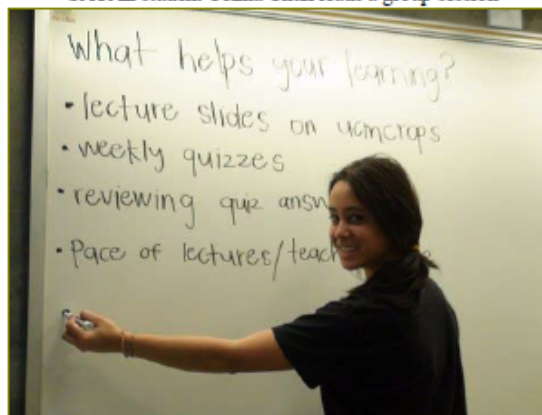 What helps your learning?
• lecture slides on ucmcrops
• weekly quizzes
• reviewing quiz answ
• Pace of lectures/teach